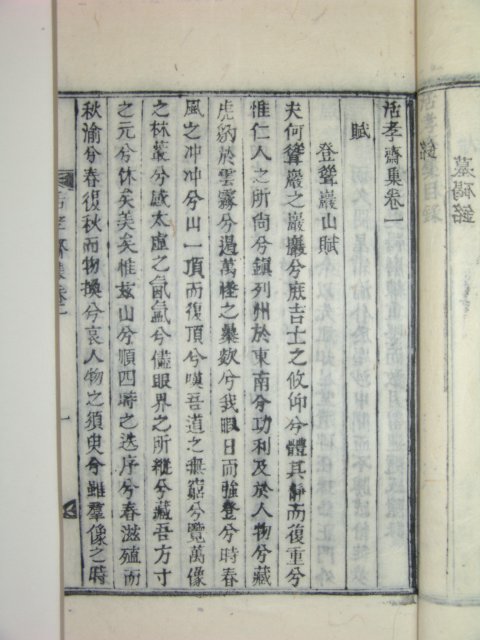 活孝齋集卷一
賦
登聳巖山賦
夫何聳巖之巖巖兮庶吉士之攸仰兮體其靜而復重兮
惟仁人之所尙兮鎮列州於東南兮功利及於人物兮藏
虎豹於雲霧兮過萬怪之欻兮我暇日而強登兮時春
風之冲冲兮山一頂而復頂兮嘆吾道之無窮兮覽萬像
之林叢兮感太虛之氤氳兮儘眼界之所縱兮藏吾方寸
之元兮休矣美矣惟玆山兮順四時之迭序兮春滋殖而
秋渝兮春復秋而物換兮哀人物之須臾兮雖羣像之時
墓碣銘